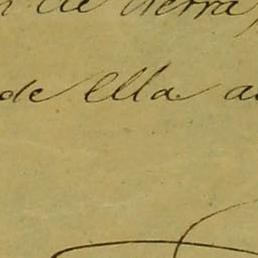 de tierra,
de ella a